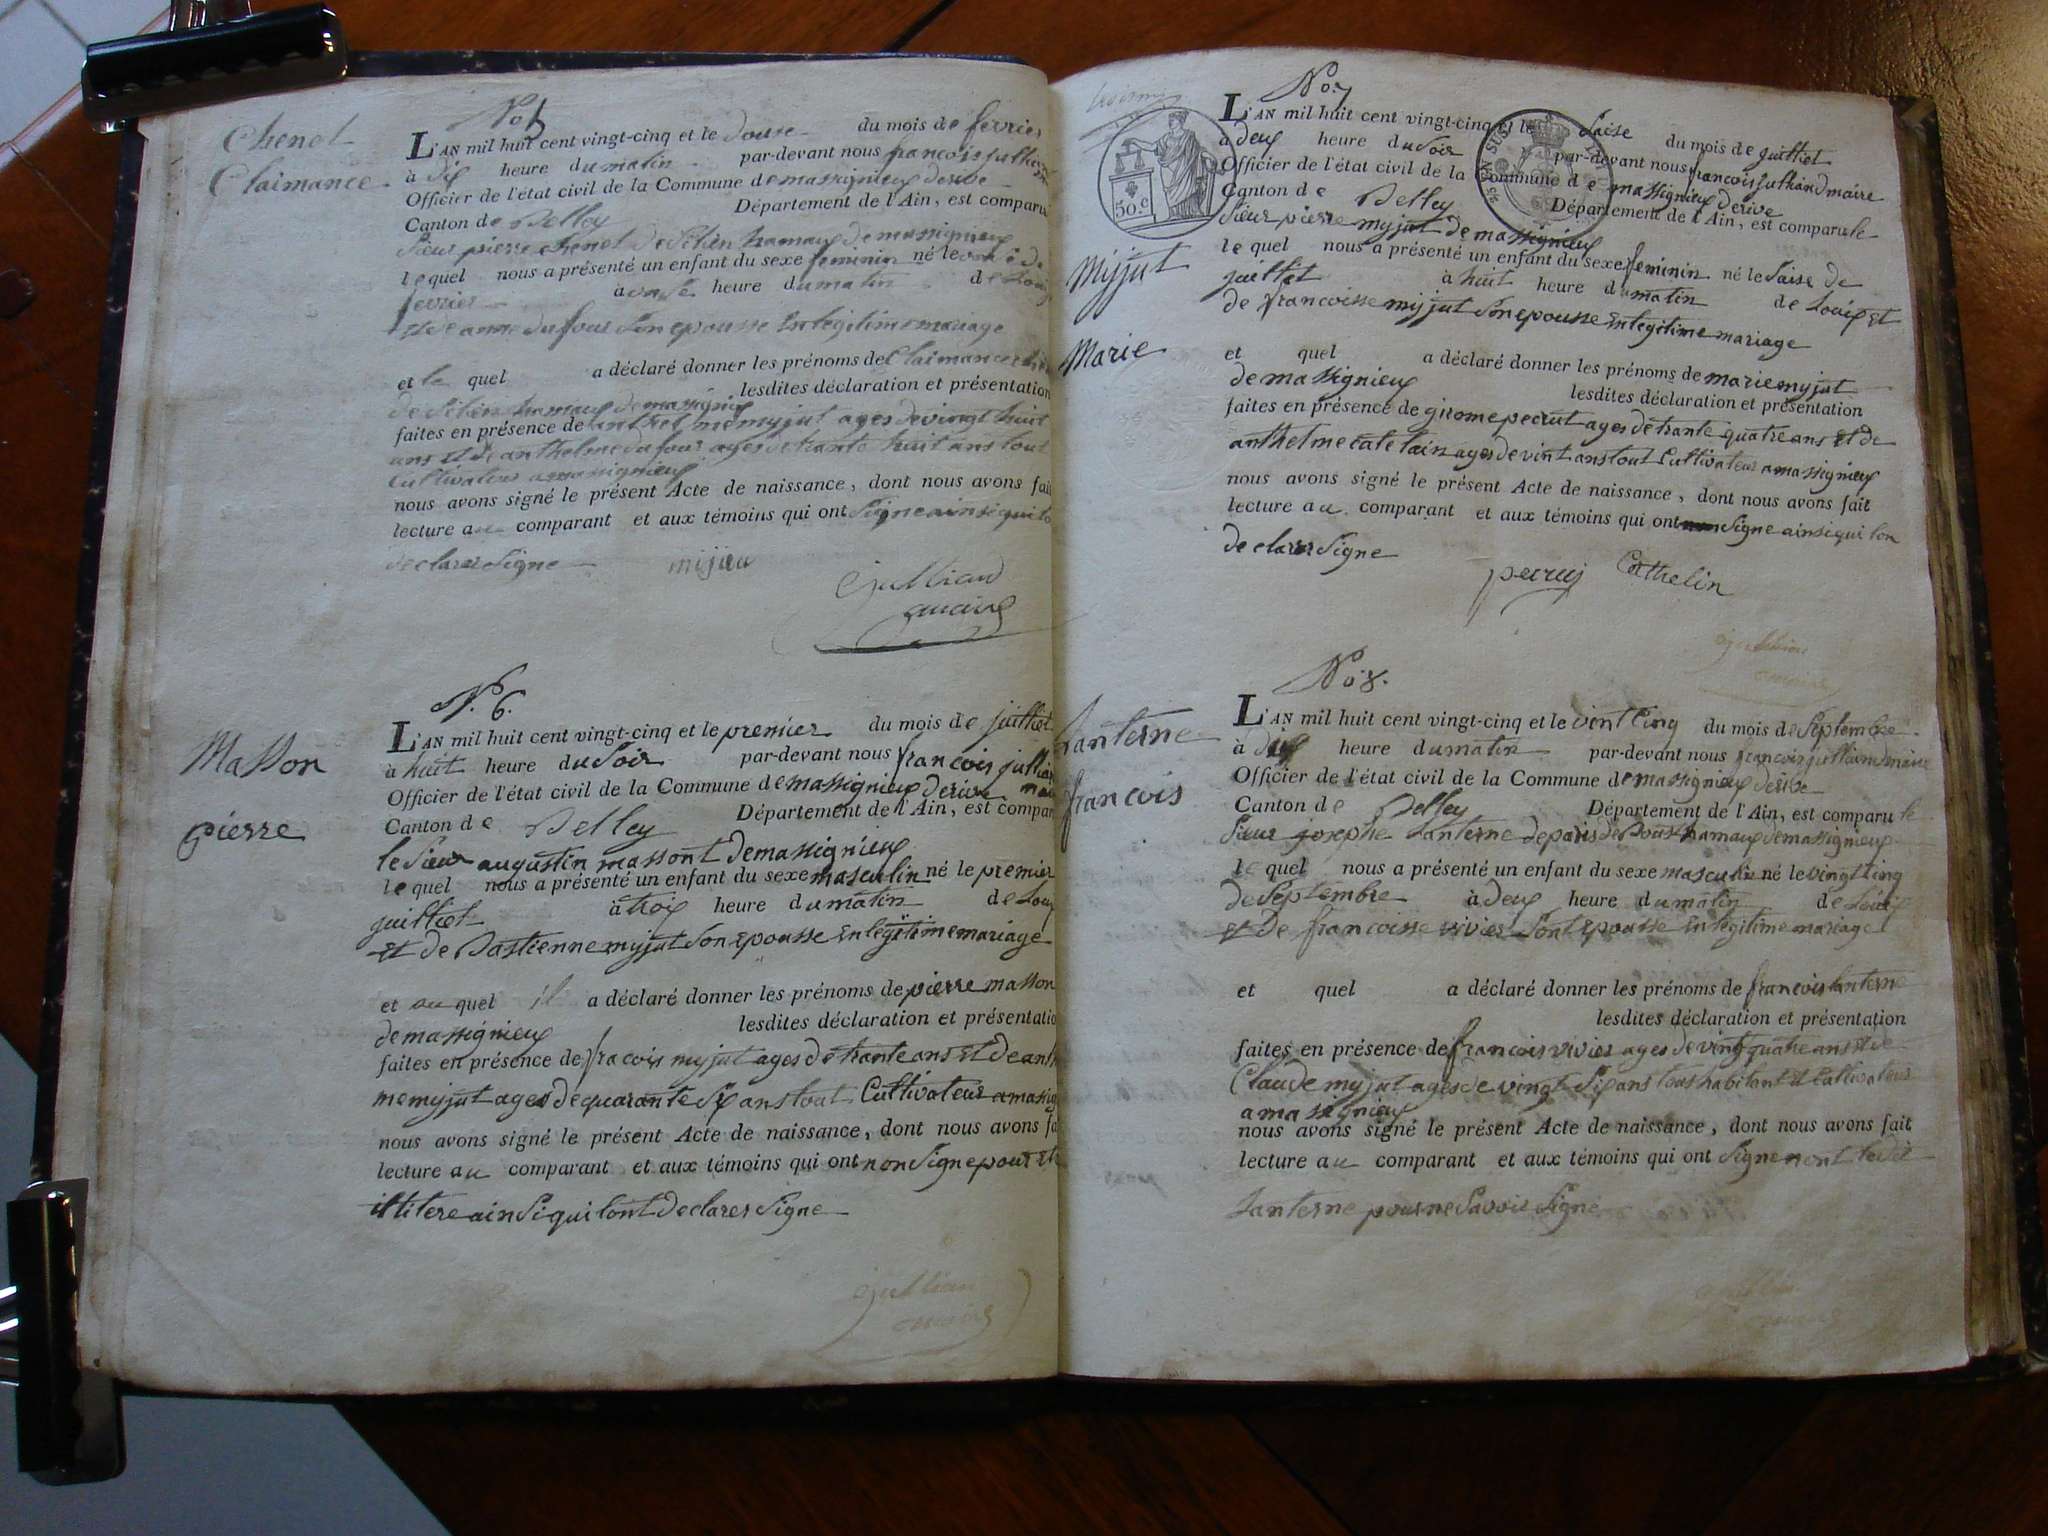 Chenet
Claimance
No 5
L'AN mil huit cent vingt-cinq et le douse du mois de fevrier
à dix heure du matin par-devant nous francois jullian
Officier de l'état civil de la Commune de massignieux derive
Canton de Belley Département de l'Ain, est comparu
Sieur pierre chenet de Silien hamaux de massignieux
lequel nous a présenté un enfant du sexe feminin né le onse de
fevrier à onse heure du matin de Louis
et de anne dufour Son epousse en legitime mariage
et le quel a déclaré donner les prénoms de Claimance
de Silien hamaux de massignieux lesdites déclaration et présentation
faites en présence de anthelme myjut ages de vingt huit
ans et de anthelme dufour ages de trante huit ans tout
Cultivateur a massignieux
nous avons signé le présent Acte de naissance, dont nous avons fait
lecture au comparant et aux témoins qui ont Signe ainsi qui lo
declarer Signe mijeu
Jullian
maire
N. 6.
Masson
pierre
L'AN mil huit cent vingt-cinq et le premier du mois de juilliet
à huit heure du Soir par-devant nous francois jullian
Officier de l'état civil de la Commune de massignieux derive mai
Canton de Belley Département de l'Ain, est compar
le Sieur augustin massont de massignieux
lequel nous a présenté un enfant du sexe masculin né le premier
juilliet à troix heure du matin de Loui
et de Bastienne myjut Son epousse en legitime mariage
et au quel il a déclaré donner les prénoms de pierre masson
de massignieux lesdites déclaration et présentatio
faites en présence de fracois myjut ages de trante ans et de anth
me myjut ages de quarante Six ans tout Cultivateur a massig
nous avons signé le présent Acte de naissance, dont nous avons fa
lecture au comparant et aux témoins qui ont non Signe pour et
illitere ainsi qui lont declarer Signe
Jullian
maire
50.C
No 7
L'AN mil huit cent vingt-cinq et le Saise du mois de juilliet
à deux heure du Soir par-devant nous francois jullian d maire
Officier de l'état civil de la Commune de massignieux derive
Canton de Belley Département de l'Ain, est comparu le
Sieur pierre myjut de massignieux
Myjut
Marie
le quel nous a présenté un enfant du sexe feminin né le Saise de
juilliet à huit heure du matin de Louix et
de francoisse myjut Son epousse en legitime mariage
et quel a déclaré donner les prénoms de marie myjut
de massignieux lesdites déclaration et présentation
faites en présence de girome pecrut ages de trante quatre ans et de
anthelme catelain ages de vint ans tout Cultivateur a massignieux
nous avons signé le présent Acte de naissance, dont nous avons fait
lecture au comparant et aux témoins qui ont Signe ainsi qui lon
declarer Signe
Cathelin
Jullian
maire
No 8.
Lanterne
francois
L'AN mil huit cent vingt-cinq et le vint Cinq du mois de Septembre
à dix heure du matin par-devant nous francois jullian d maire
Officier de l'état civil de la Commune de massignieux derive
Canton de Belley Département de l'Ain, est comparu le
Sieur josephe Lanterne de paris de Bous hamaux de massignieux
le quel nous a présenté un enfant du sexe masculin né le vingt Cinq
de Septembre à deux heure du matin de Louix
et De francoisse vivier Sont epousse en legitime mariage
et quel a déclaré donner les prénoms de francois Lanterne
lesdites déclaration et présentation
faites en présence de francois vivier ages de vingt quatre ans et de
Claude myjut ages de vingt Six ans tous habitant et Cultivateur
a massignieux
nous avons signé le présent Acte de naissance, dont nous avons fait
lecture au comparant et aux témoins qui ont Signe nont ledit
Lanterne pour ne Savoir Signe
Jullian
maire